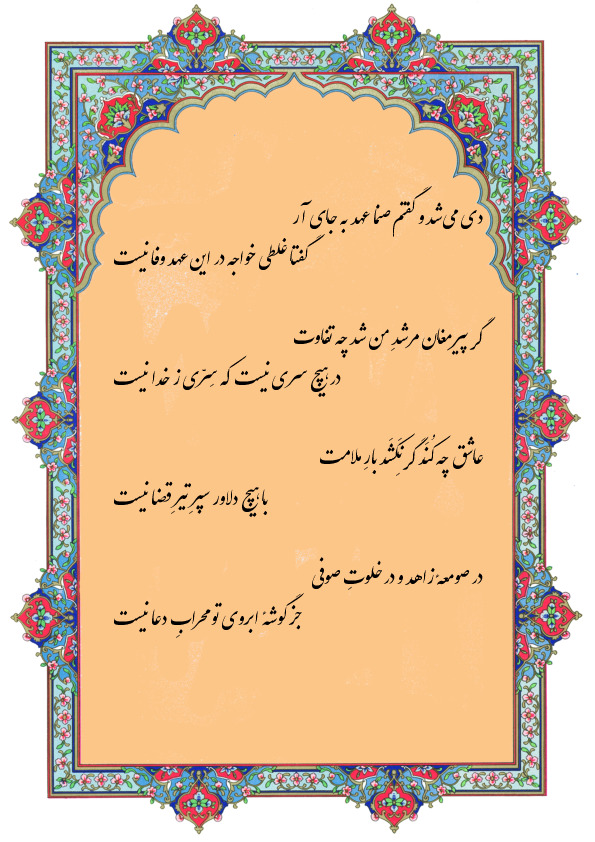 دی می‌شد و گفتم صنما عهد به جای آر
گفتا غلطی خواجه در این عهد وفا نیست
گر پیر مغان مرشدِ من شد چه تفاوت
در هیچ سری نیست که سِرّی ز خدا نیست
عاشق چه کُنَد گر نَکِشَد بارِ ملامت
با هیچ دلاور سپرِ تیرِ قضا نیست
در صومعهٔ زاهد و در خلوتِ صوفی
جز گوشهٔ ابروی تو محرابِ دعا نیست